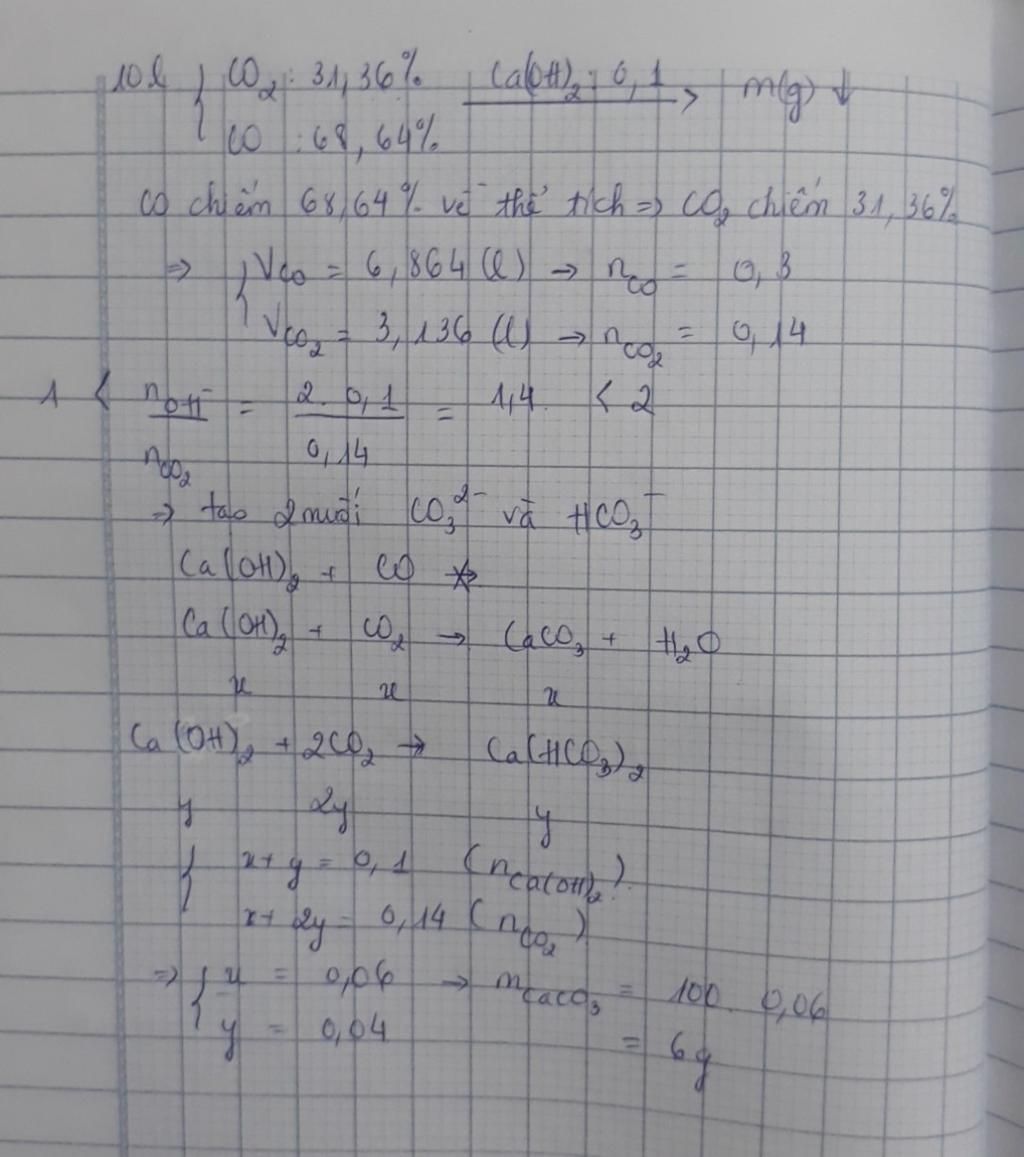 10l { CO₂ : 31,36% Ca(OH)₂ : 0,1 → m(g) ↓
CO : 68,64%
CO chiếm 68,64% về thể tích ⇒ CO₂ chiếm 31,36%
⇒ { V_CO = 6,864 (l) → n_CO = 0,3
V_CO₂ = 3,136 (l) → n_CO₂ = 0,14
1 < n_OH⁻ / n_CO₂ = 2. 0,1 / 0,14 = 1,4 < 2
⇒ tạo 2 muối CO₃²⁻ và HCO₃⁻
Ca(OH)₂ + CO ↛
Ca(OH)₂ + CO₂ → CaCO₃ + H₂O
x x x
Ca(OH)₂ + 2CO₂ → Ca(HCO₃)₂
y 2y y
{ x + y = 0,1 (n_Ca(OH)₂)
x + 2y = 0,14 (n_CO₂)
⇒ { x = 0,06 → m_CaCO₃ = 100. 0,06
y = 0,04 = 6g